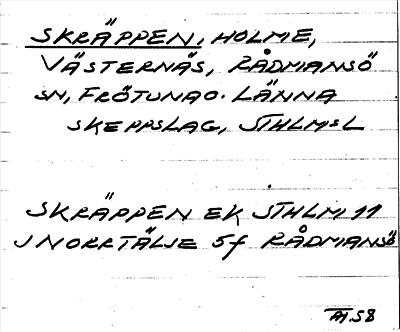 SKRÄPPEN, HOLME,
VÄSTERNÄS, RÅDMANSÖ
SN, FRÖTUNA O. LÄNNA
SKEPPSLAG, STHLMSL
SKRÄPPEN EK STHLM 11
J NORRTÄLJE 5f RÅDMANSÖ
58